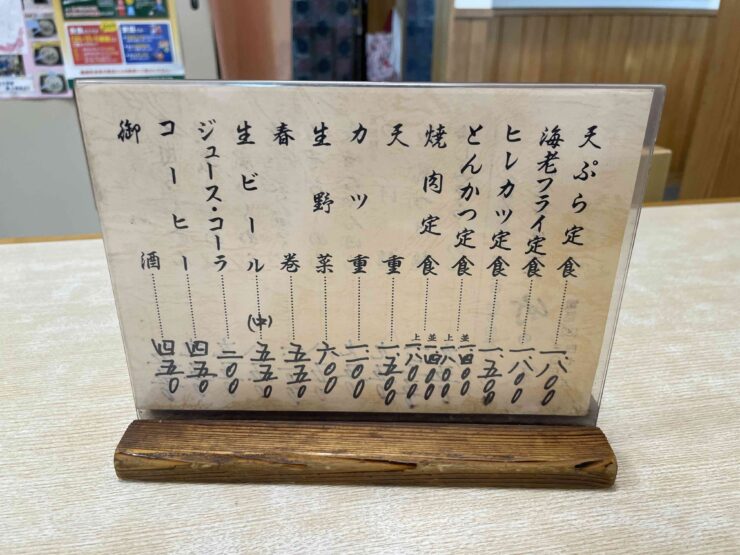 天ぷら定食 一、八〇〇
海老フライ定食 一、八〇〇
ヒレカツ定食 一、五〇〇
とんかつ定食 並 一、四〇〇 上 一、八〇〇
焼肉定食 並 一、四〇〇 上 一、八〇〇
天重 一、五〇〇
カツ重
生野菜 六〇〇
春巻 五五〇
生ビール(中) 五五〇
ジュース・コーラ 二〇〇
コーヒー 四五〇
御酒 四五〇